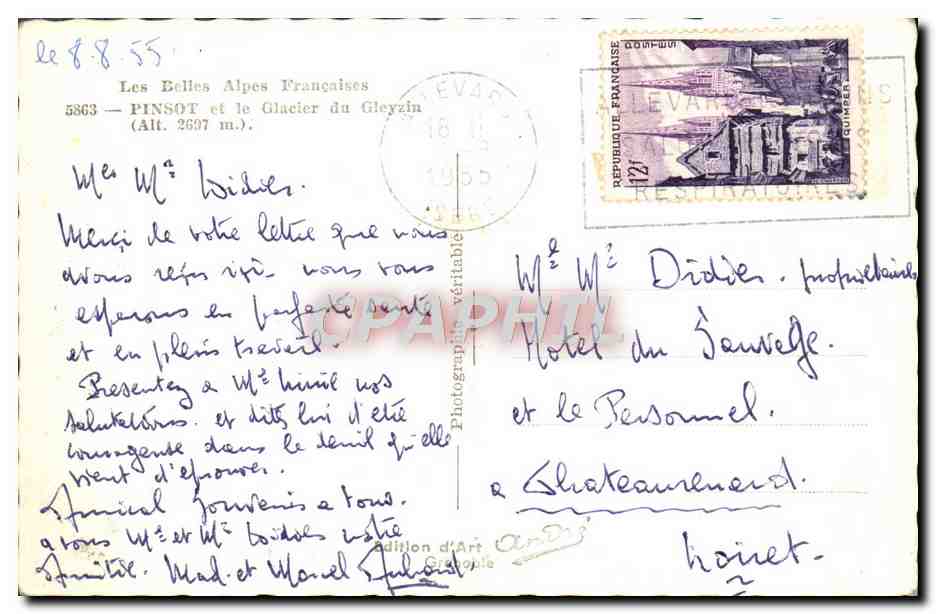 le 8.8.55
Les Belles Alpes Françaises
5863 — PINSOT et le Glacier du Gleyzin
(Alt. 2697 m.).
Mer Mr Didier.
Merçi de votre lettre que nous
avons reçus içi. nous vous
esperons en parfaite santé
et en plein travail.
Presentez a Me nos
salutations. et dites lui d'etre
courageuse dans le deuil qu'elle
vient d'eprouver.
Amical Souvenir a tous.
a vous Me et Mr Didier notre
Amitié. Mad. et Marcel
Photographie véritable
Edition d'Art André
Grenoble
CPAPHIL
REPUBLIQUE FRANÇAISE
POSTES
12f
QUIMPER
ALLEVARD
18 H
1955
ISERE
ALLEVARD LES BAINS
RESPIRATOIRES
Me Mr Didier. propriétaires
Hotel du Sauvage.
et le Personnel.
a Chateaurenard.
Loiret.